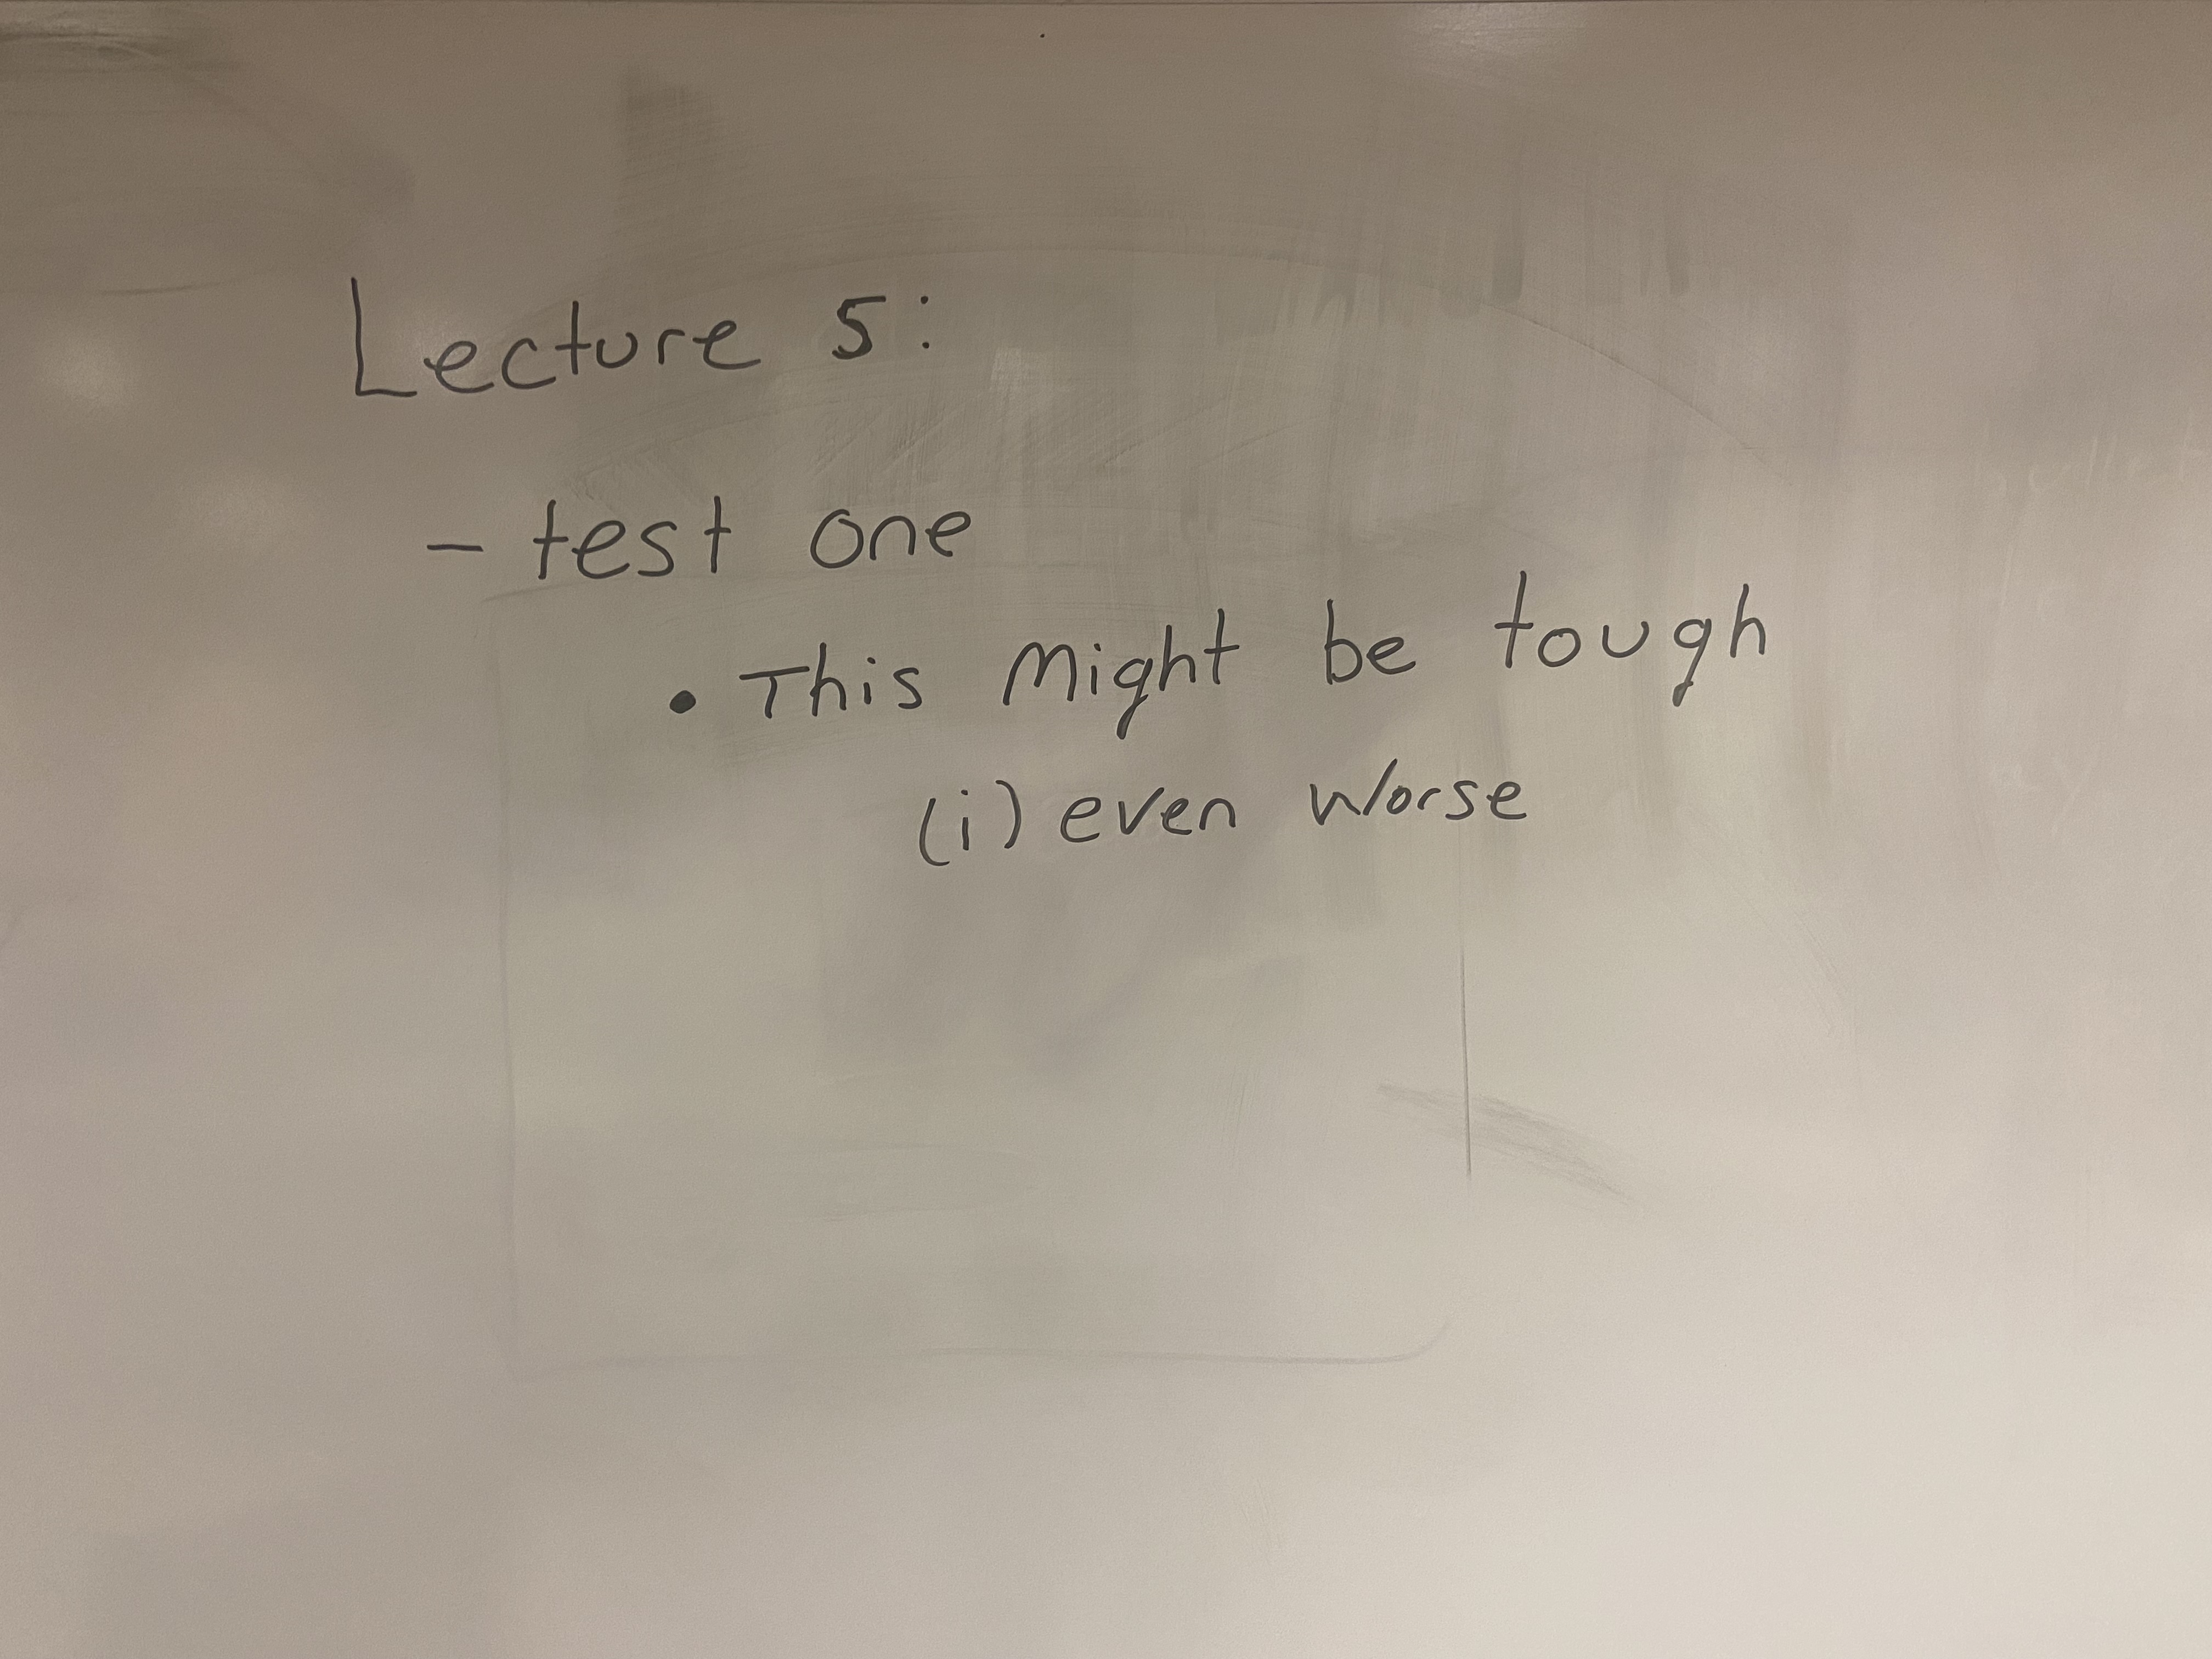 Lecture 5:
- test one
• This Might be tough
(i) even worse